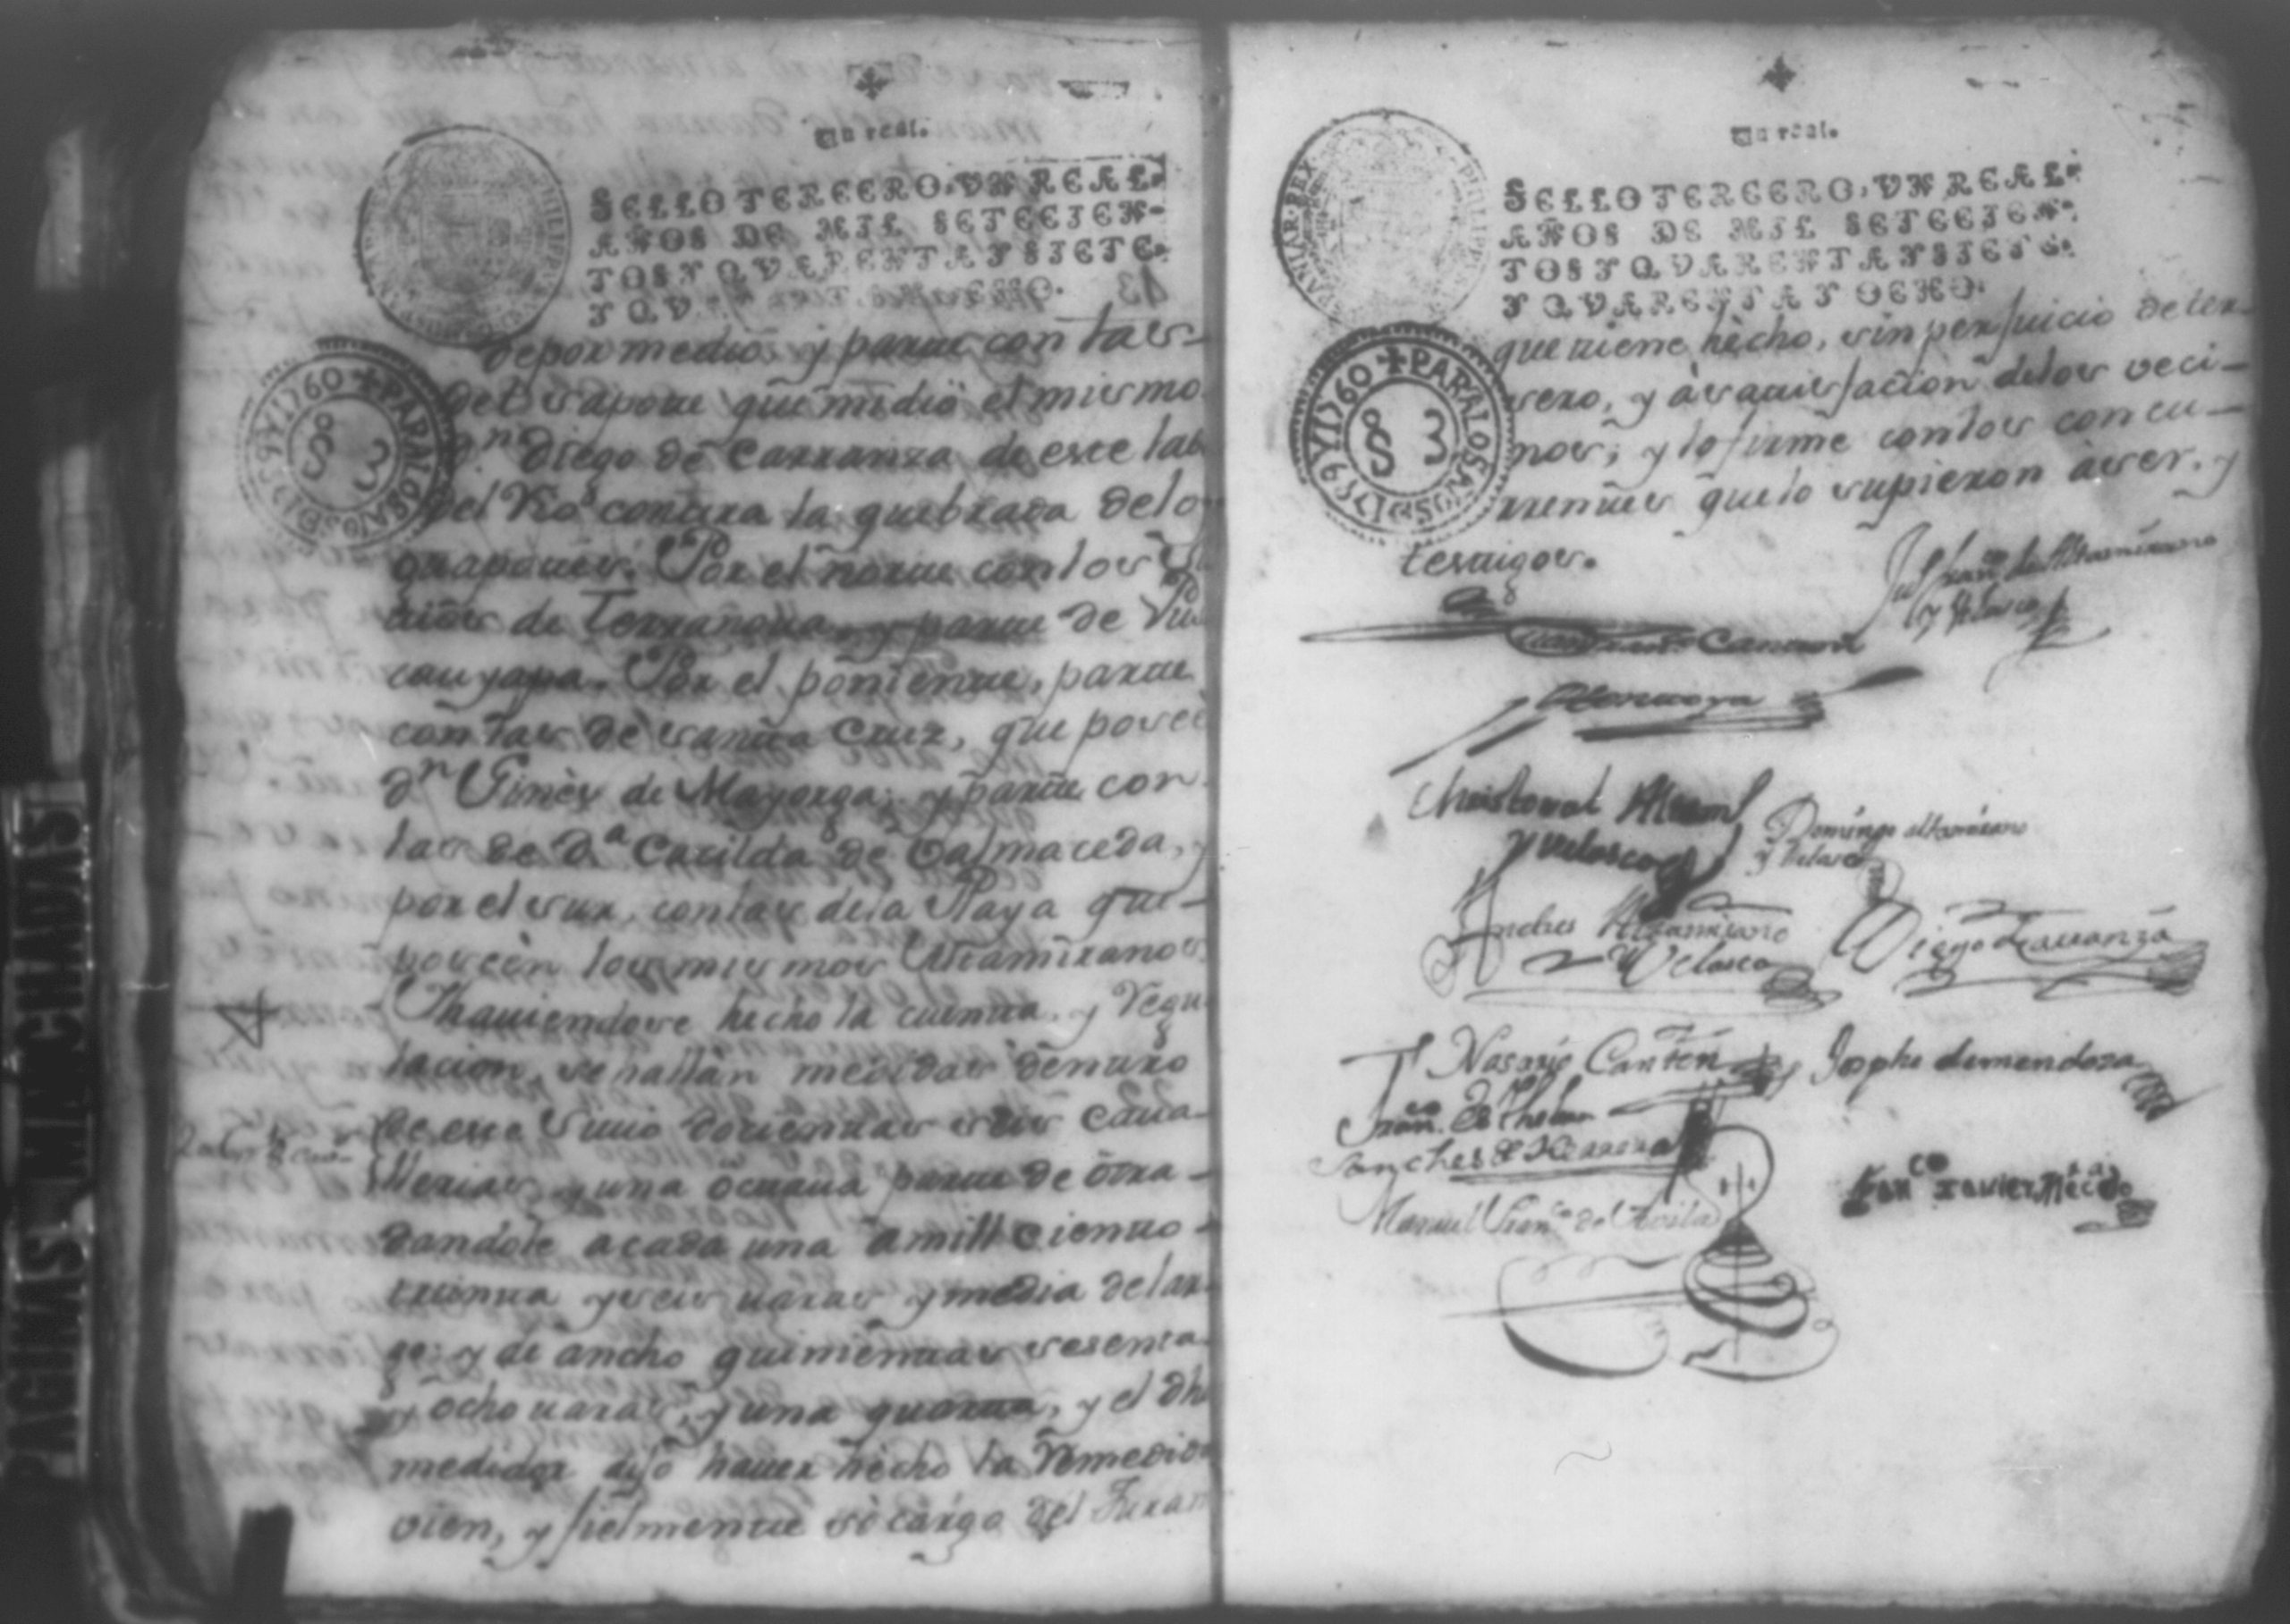 Un real.
SELLO TERCERO, VN REAL,
AÑOS DE MIL SETECIEN-
TOS Y QVARENTA Y SIETE,
Y QV
PARA LOS AÑOS DE 1759 Y 1760
S 3
de por medio; y parte con tas-
del sapote que midio el mismo
Dn Diego de Carranza de este lab
del Rio contra la quebrada de lo
Por el norte con los
de Terranoba, y parte de
cauyapa. Por el poniente, parte
con las de santa Cruz, que posee
dn Ginès de Mayorga; y parte con
las de Da Casilda de Balmaceda, y
por el sur, con las de la Playa que-
poseèn los mismos Altamiranos
Y haviendose hecho la cuenta, y Regu
lacion, se hallan medidas dentro
de este Sitio docientas seis cava-
llerias, y una octava parte de otra-
dandole a cada una a mill ciento-
treinta y seis varas y media de lar
go: y de ancho quinientas sesenta
y ocho varas, y una quarta, y el dho
medidor dijo haver hecho la Remedida
vien, y fielmente so cargo del Juram
Un real.
SELLO TERCERO, VN REAL,
AÑOS DE MIL SETECIEN-
TOS Y QVARENTA Y SIETE,
Y QVARENTA Y OCHO.
HISPANIAR. REX PHILIPPUS
PARA LOS AÑOS DE 1759 Y 1760
S 3
que tiene hècho, sin perjuicio de ter-
sero, y à satisfacion delos veci-
nos; y lo firmè con los concu-
rrentes que lo supieron àser. y
testigos.
Juo franco de Altamirano
y Velasco
Christoval Altam
y Velasco
Domingo altamirano
y Velasco
Andres Altamirano
y Velasco
Diego Carranza
Nasario Canten
Jophe de mendoza
Franco
Sanches de Herrera
Manuel Franco de Avila
Franco Xavier
PAGINAS MANCHADAS